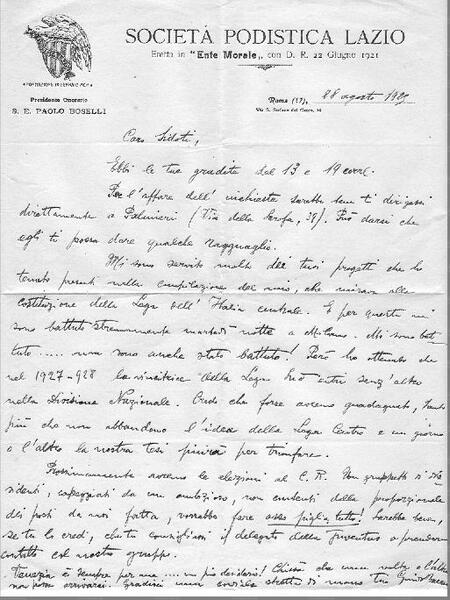 SOCIETÀ PODISTICA LAZIO
Eretta in "Ente Morale", con D. R. 22 Giugno 1921
Presidente Onorario
S. E. PAOLO BOSELLI
Roma (17), 28 agosto 192
Caro Sidoti,
Ebbi le tue gradite del 13 e 19 corr.
Per l'affare dell' inchiesta sarebbe bene ti dirigessi
direttamente a Palmieri (Via della Scrofa, 39). Può darsi che
egli ti possa dare qualche ragguaglio.
Mi sono servito molto dei tuoi progetti che ho
tenuto presenti nella compilazione del mio, che mirava alla
costituzione della Lega dell' Italia centrale. E per questo mi
sono battuto strenuamente martedì notte a Milano. Mi sono bat-
tuto ..... ma sono anche stato battuto! Però ho ottenuto che
nel 1927-928 la vincitrice della Lega Sud entri senz'altro
nella Divisione Nazionale. Credo che forse avremo guadagnato, tanto
più che non abbandono l'idea della Lega Centro e un giorno
o l'altro la nostra tesi finirà per trionfare.
Prossimamente avremo le elezioni al C. R. Un gruppetto di
capeggiati da un ambizioso, non contenti della proporzionale
dei posti da noi fatta, vorrebbe fare asso piglia tutto! Sarebbe bene,
se tu lo credi, che tu consigliassi il delegato della Juventus a prendere
contatto col nostro gruppo.
Venezia è sempre per me ... un pio desiderio! Chissà che una volta o l'altra
non possa arrivarci. Gradisci una cordiale stretta di mano tuo